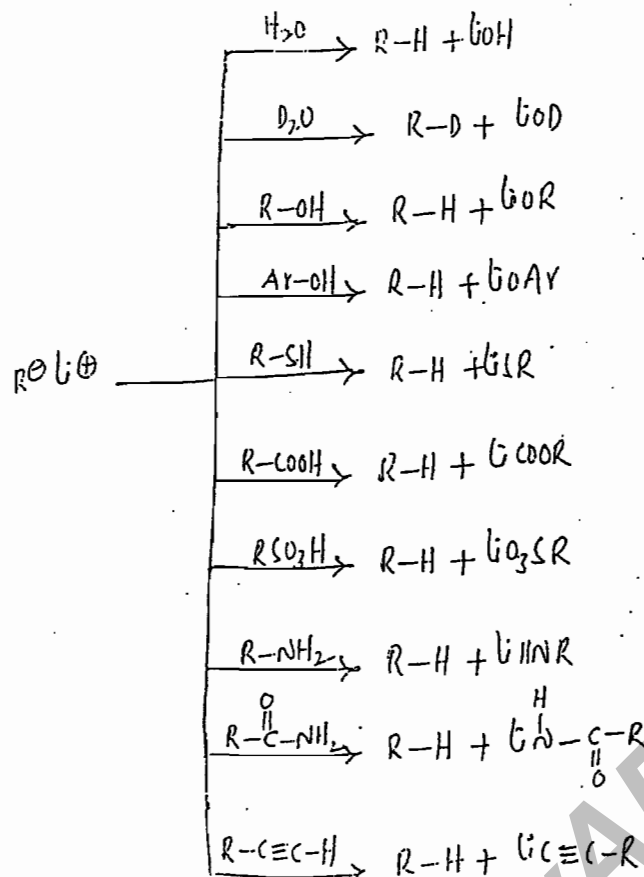 H₂O → R-H + LiOH
D₂O → R-D + LiOD
R-OH → R-H + LiOR
Ar-OH → R-H + LiOAr
R⊖ Li⊕
R-SH → R-H + LiSR
R-COOH → R-H + LiCOOR
RSO₃H → R-H + LiO₃SR
R-NH₂ → R-H + LiHNR
O H
R-C-NH₂ → R-H + LiN-C-R
O
R-C≡C-H → R-H + LiC≡C-R